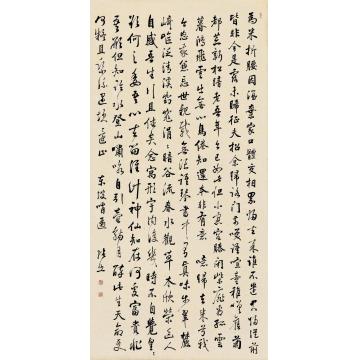 為米折腰因酒棄家口體交相累歸去來誰不遣君歸覺從前
皆非今是露未晞征夫指余歸路門前笑語喧童稚嗟舊菊
都荒新松暗老吾年今已如此但小窗容膝閉柴扉策杖看孤雲
暮鴻飛雲出無心鳥倦知還本非有意噫歸去來兮我
今忘我兼忘世親戚無浪語琴書中有真味步翠麓
崎嶇泛清溪窈窕涓涓暗谷流春水觀草木欣榮幽人
自感吾生行且休矣念寓形宇內復幾時不自覺皇皇
欲何之委吾心去留誰計神仙知在何處富貴非
吾願但知臨水登山嘯詠自引壺觴自醉此生天命更
何疑且乘流遇坎還止 東坡哨遍